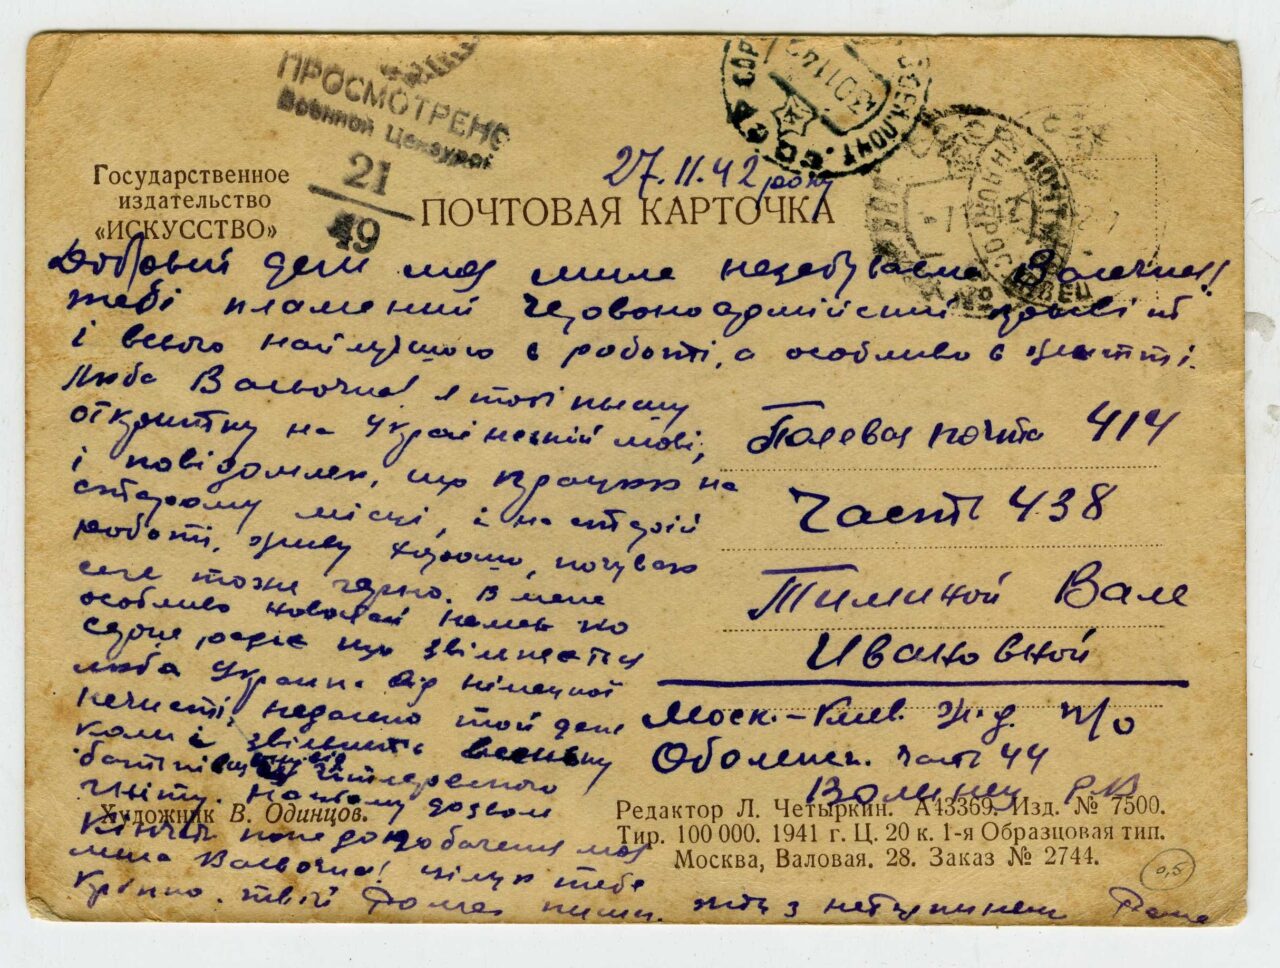 ПРОСМОТРЕНО
Военной Цензурой
21
49
Государственное
издательство
«ИСКУССТВО»
ПОЧТОВАЯ КАРТОЧКА
27.11.42 року
Добрий день моя мила незабуваема Валечка!
тебі пламений червоноармійский привіт
і всього найлучшого в роботі, а особливо в житті.
Люба Валечка! я тобі пишу
открытку на Українській мові,
і повідомляю, що працюю на
старому місці, і на старій
роботі, живу хорошо, почуваю
себе тоже
особливо
серце радіє що звільняется
люба Україна від німецкой
нечисті, недалеко той день
коли і звільнить
батьківщину від гітлерского
гніту. На цьому дозволь
кінчать попобачення моя
мила Валечка! цілую тебе
кріпко. твій Рома пиши. жду з нетерпинем Рома
Полевая почта 414
Часть 438
Тиминой Вале
Ивановной
Моск.-Киев. ж.д. п/о
Оболенск. часть 44
Художник В. Одинцов.
Редактор Л. Четыркин. А43369. Изд. № 7500.
Тир. 100 000. 1941 г. Ц. 20 к. 1-я Образцовая тип.
Москва, Валовая. 28. Заказ № 2744.
0,5